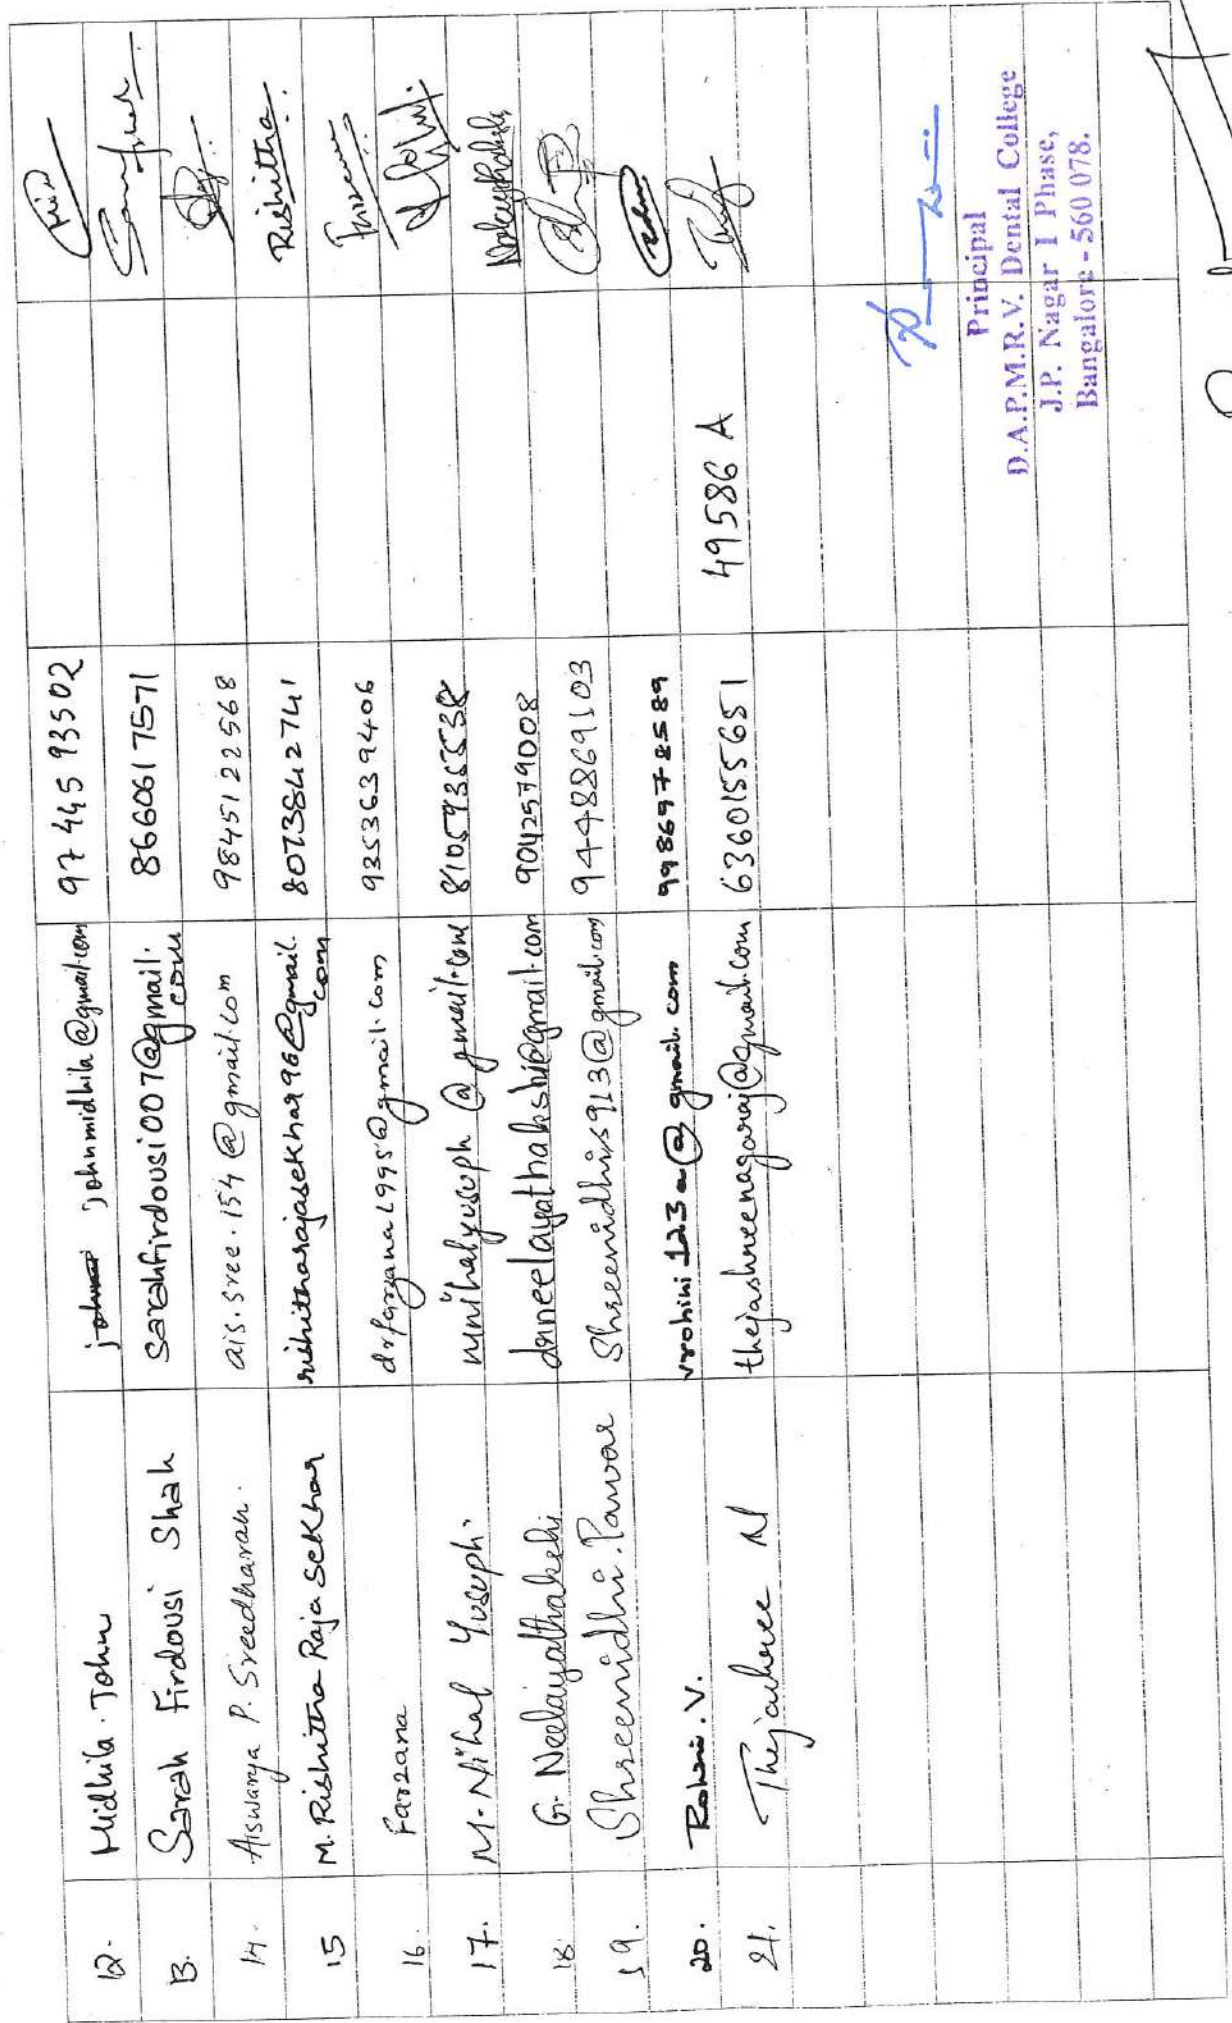 12. Midhila. John johnmidhila@gmail.com 97 445 93502
13. Sarah Firdousi Shah sarahfirdousi007@gmail.
com 8660617571
14. Aiswarya P. Sreedharan. ais.sree.154@gmail.com 9845122568
15 M. Rishitha Raja Sekhar rishitharajasekhar96@gmail.
com 8073842741 Rishitha
16. Farzana drfarzana1995@gmail.com 9353639406
17. M. Nihal Yuseph. mnihalyuseph@gmail.com
18. G. Neelayathakshi drneelayathakshi@gmail.com 9042579008
19. Shreenidhi. Pawar Shreenidhis913@gmail.com 9448869103
20. Rohini. V. 9986978589
21. Thejashree N thejashreenagaraj@gmail.com 6360155651 49586 A
Principal
D.A.P.M.R.V. Dental College
J.P. Nagar I Phase,
Bangalore - 560 078.